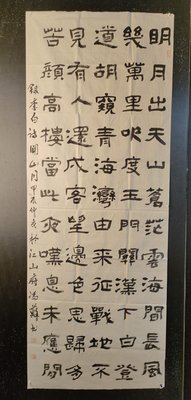 明月出天山蒼茫雲海間長風
幾萬里吹度玉門關漢下白登
道胡窺青海灣由來征戰地不
見有人還戍客望邊色思歸多
苦顏高樓當此夜嘆息未應閒
錄李白詩關山月甲辰仲夏於江山府書